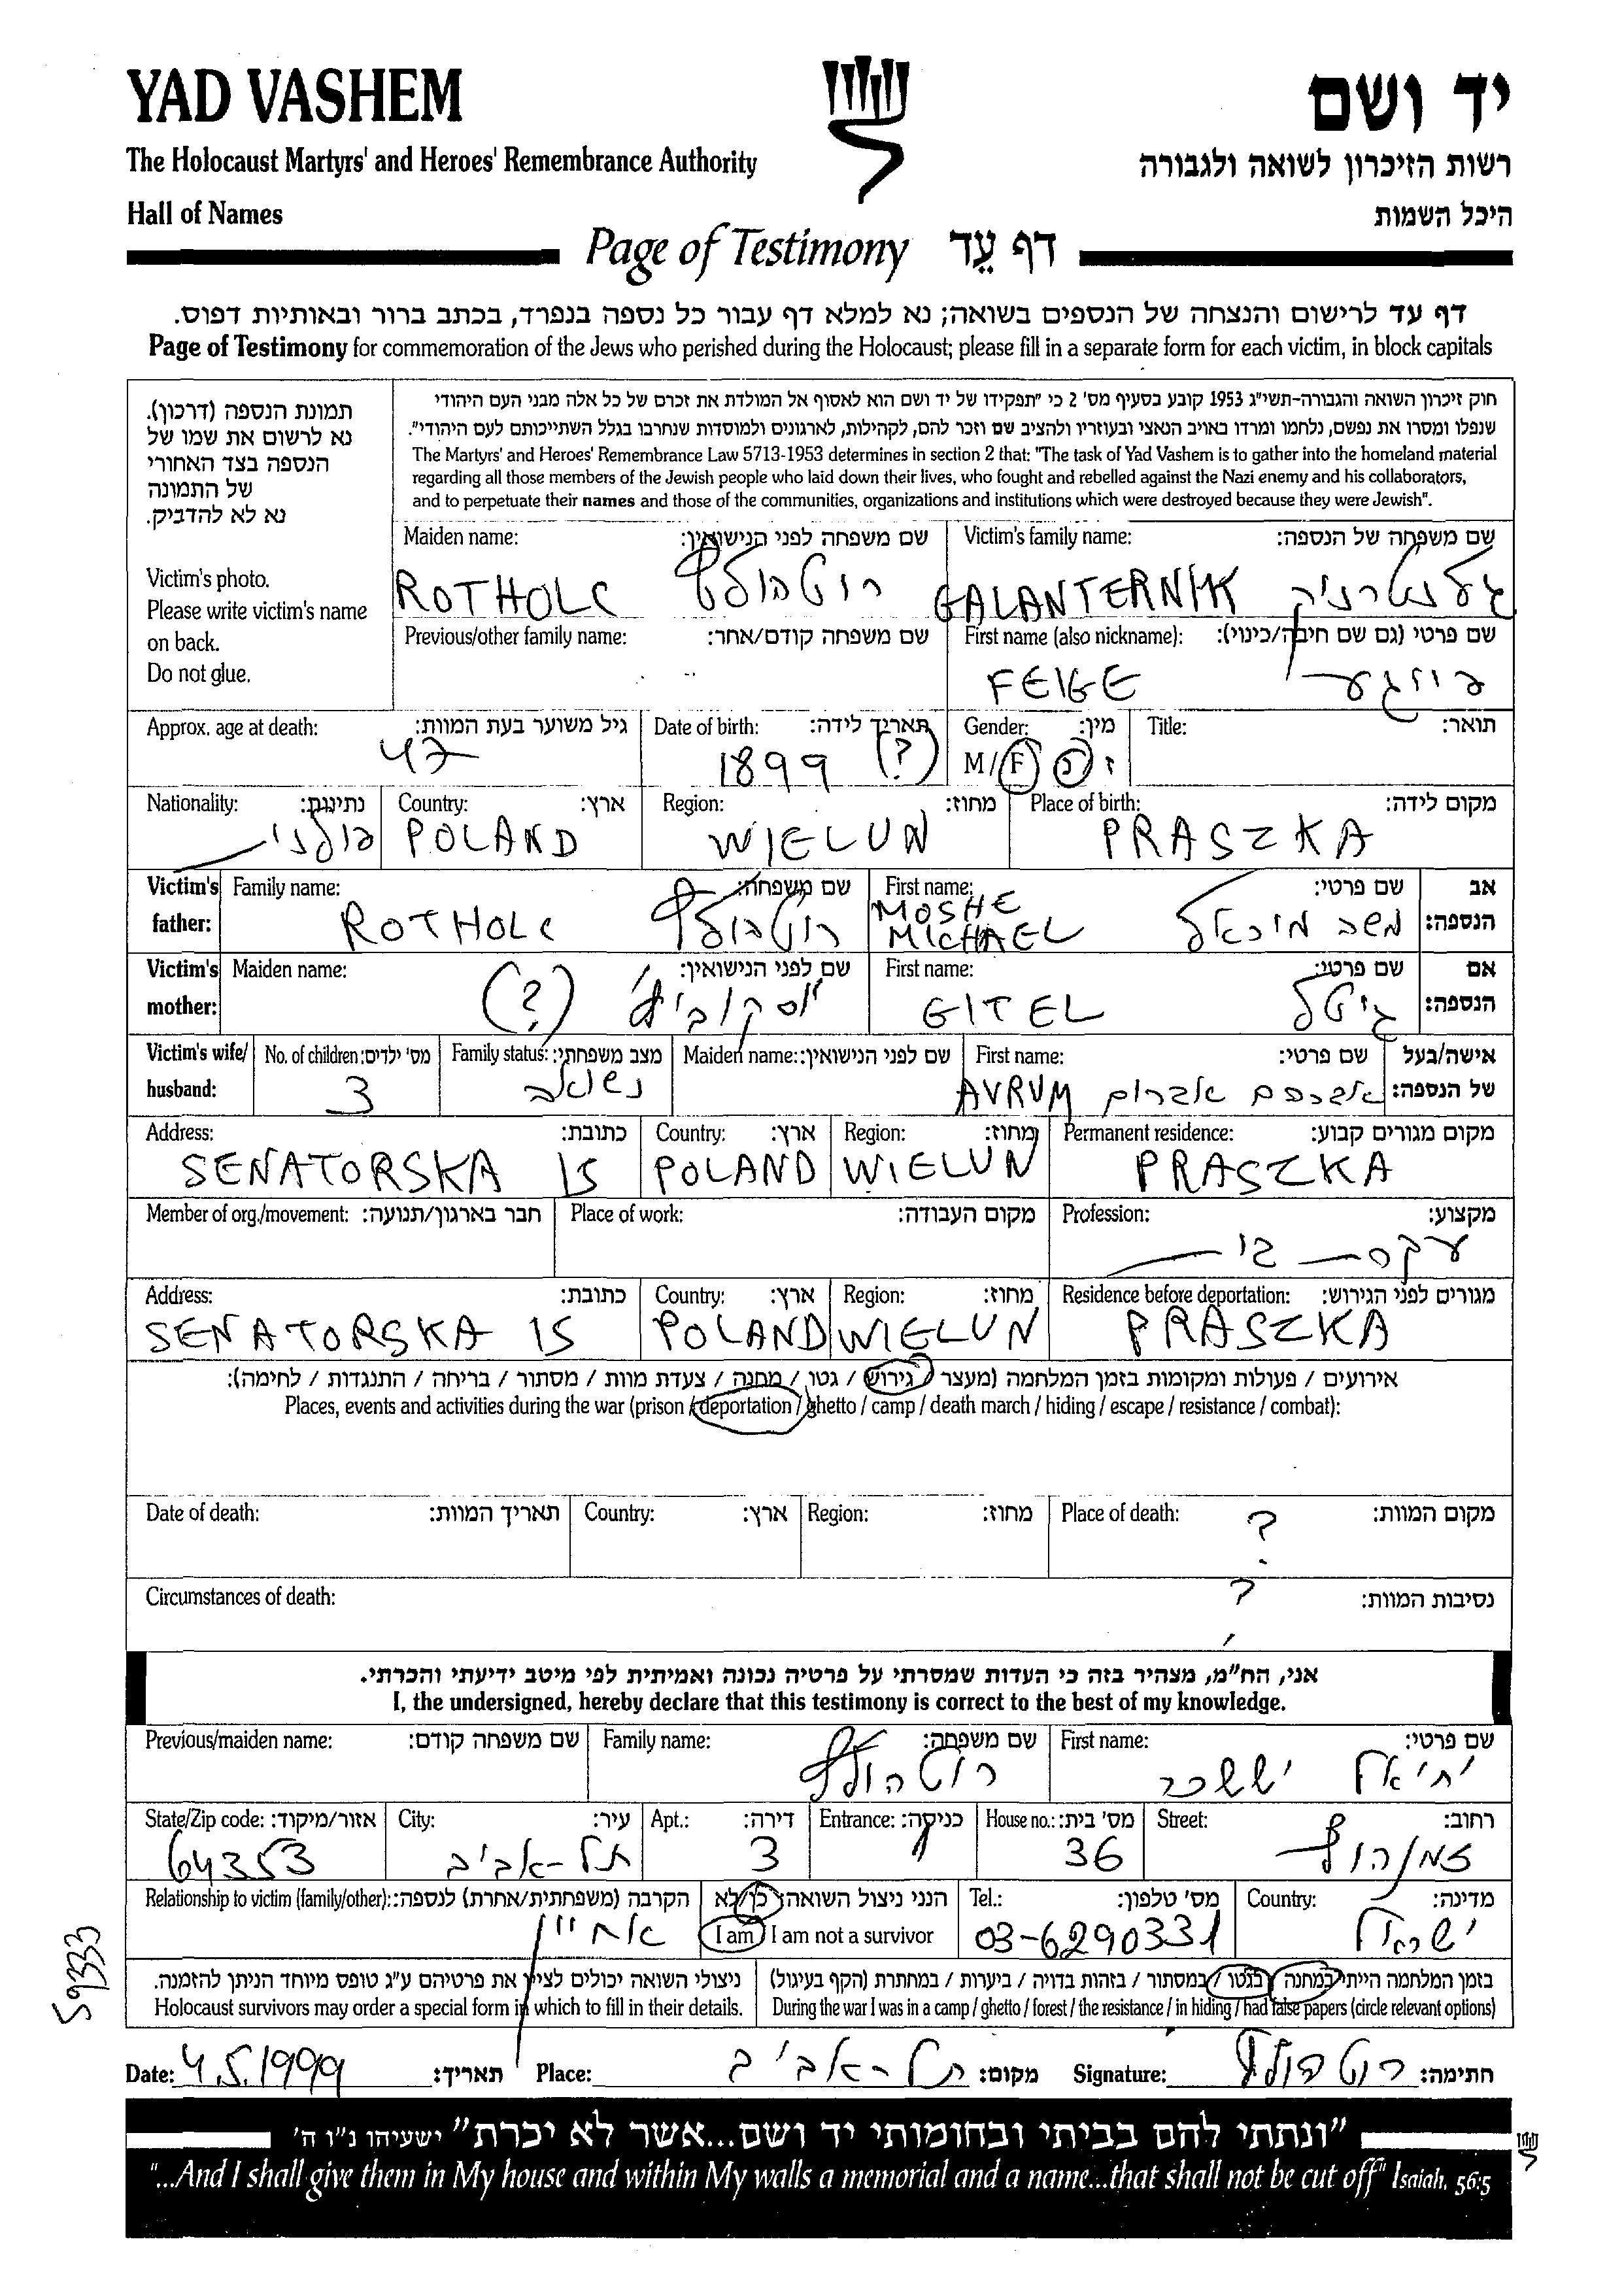 YAD VASHEM יד ושם
The Holocaust Martyrs' and Heroes' Remembrance Authority רשות הזיכרון לשואה ולגבורה
Hall of Names היכל השמות
Page of Testimony דף עֵד
דף עד לרישום והנצחה של הנספים בשואה; נא למלא דף עבור כל נספה בנפרד, בכתב ברור ובאותיות דפוס.
Page of Testimony for commemoration of the Jews who perished during the Holocaust; please fill in a separate form for each victim, in block capitals
תמונת הנספה (דרכון).
נא לרשום את שמו של
הנספה בצד האחורי
של התמונה
נא לא להדביק.
Victim's photo.
Please write victim's name
on back.
Do not glue.
חוק זיכרון השואה והגבורה-תשי"ג 1953 קובע בסעיף מס' 2 כי "תפקידו של יד ושם הוא לאסוף אל המולדת את זכרם של כל אלה מבני העם היהודי
שנפלו ומסרו את נפשם, נלחמו ומרדו באויב הנאצי ובעוזריו ולהציב שם וזכר להם, לקהילות, לארגונים ולמוסדות שנחרבו בגלל השתייכותם לעם היהודי".
The Martyrs' and Heroes' Remembrance Law 5713-1953 determines in section 2 that: "The task of Yad Vashem is to gather into the homeland material
regarding all those members of the Jewish people who laid down their lives, who fought and rebelled against the Nazi enemy and his collaborators,
and to perpetuate their names and those of the communities, organizations and institutions which were destroyed because they were Jewish".
Maiden name: שם משפחה לפני הנישואין: Victim's family name: שם משפחה של הנספה:
ROTHOLC רוטהולץ GALANTERNIK גלנטרניק
Previous/other family name: שם משפחה קודם/אחר: First name (also nickname): שם פרטי (גם שם חיבה/כינוי):
FEIGE פייגע
Approx. age at death: גיל משוער בעת המוות: Date of birth: תאריך לידה: Gender: מין: Title: תואר:
47 1899 (?) M/F ז נ
Nationality: נתינות: Country: ארץ: Region: מחוז: Place of birth: מקום לידה:
פולני POLAND WIELUN PRASZKA
Victim's father: Family name: שם משפחה: First name: שם פרטי: אב הנספה:
ROTHOLC רוטהולץ MOSHE MICHAEL משה מיכאל
Victim's mother: Maiden name: שם לפני הנישואין: First name: שם פרטי: אם הנספה:
(?) GITEL גיטל
Victim's wife/husband: No. of children: מס' ילדים: Family status: מצב משפחתי: Maiden name: שם לפני הנישואין: First name: שם פרטי: אישה/בעל של הנספה:
3 נשואה AVRUM אברהם אברום
Address: כתובת: Country: ארץ: Region: מחוז: Permanent residence: מקום מגורים קבוע:
SENATORSKA 15 POLAND WIELUN PRASZKA
Member of org./movement: חבר בארגון/תנועה: Place of work: מקום העבודה: Profession: מקצוע:
עקרת בית
Address: כתובת: Country: ארץ: Region: מחוז: Residence before deportation: מגורים לפני הגירוש:
SENATORSKA 15 POLAND WIELUN PRASZKA
אירועים / פעולות ומקומות בזמן המלחמה (מעצר / גירוש / גטו / מחנה / צעדת מוות / מסתור / בריחה / התנגדות / לחימה):
Places, events and activities during the war (prison / deportation / ghetto / camp / death march / hiding / escape / resistance / combat):
Date of death: תאריך המוות: Country: ארץ: Region: מחוז: Place of death: מקום המוות:
?
Circumstances of death: נסיבות המוות:
?
אני, הח"מ, מצהיר בזה כי העדות שמסרתי על פרטיה נכונה ואמיתית לפי מיטב ידיעתי והכרתי.
I, the undersigned, hereby declare that this testimony is correct to the best of my knowledge.
Previous/maiden name: שם משפחה קודם: Family name: שם משפחה: First name: שם פרטי:
רוטהולץ יחיאל יששכר
State/Zip code: אזור/מיקוד: City: עיר: Apt.: דירה: Entrance: כניסה: House no.: מס' בית: Street: רחוב:
64353 תל-אביב 3 36 זמנהוף
Relationship to victim (family/other): הקרבה (משפחתית/אחרת) לנספה: הנני ניצול השואה: כן/לא Tel.: מס' טלפון: Country: מדינה:
אחיין I am / I am not a survivor 03-6290331 ישראל
ניצולי השואה יכולים לציין את פרטיהם ע"ג טופס מיוחד הניתן להזמנה. בזמן המלחמה הייתי במחנה / בגטו / במסתור / בזהות בדויה / ביערות / במחתרת (הקף בעיגול)
Holocaust survivors may order a special form in which to fill in their details. During the war I was in a camp / ghetto / forest / the resistance / in hiding / had false papers (circle relevant options)
59333
Date: 4.5.1999 תאריך: Place: תל-אביב מקום: Signature: רוטהולץ חתימה:
"ונתתי להם בביתי ובחומותי יד ושם...אשר לא יכרת" ישעיהו נ"ו ה'
"...And I shall give them in My house and within My walls a memorial and a name...that shall not be cut off" Isaiah, 56:5